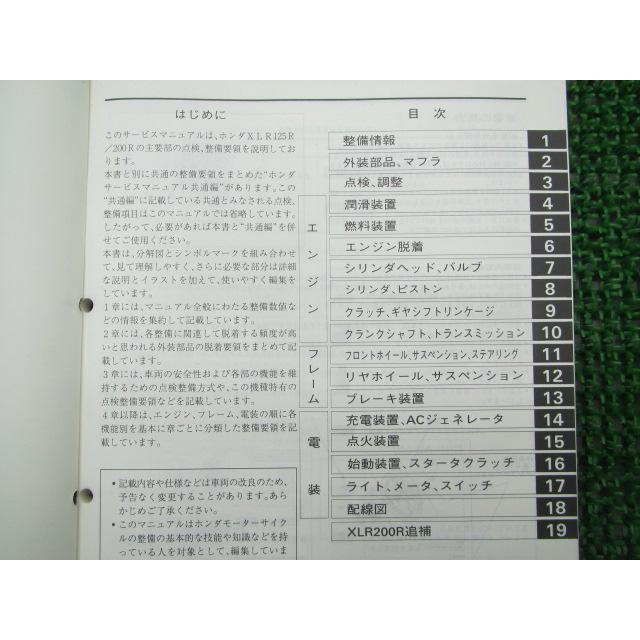 はじめに
このサービスマニュアルは、ホンダＸＬＲ125Ｒ
／200Ｒの主要部の点検、整備要領を説明してお
ります。
本書と別に共通の整備要領をまとめた“ホンダ
サービスマニュアル共通編”があります。この
“共通編”に記載している共通とみなされる点検、
整備項目はこのマニュアルでは省略しています。
したがって、必要があれば本書と“共通編”を併
せてご使用ください。
本書は、分解図とシンボルマークを組み合わせ
て、見て理解しやすく、さらに必要な部分は詳細
な説明とイラストを加えて、使いやすく編集を
しています。
１章には、マニュアル全般にわたる整備数値な
どの情報を集約して記載しています。
２章には、各整備に関連して脱着する頻度が高
いと思われる外装部品の脱着要領をまとめて記
載しています。
３章には、車両の安全性および各部の機能を維
持するための点検整備方式や、この機種特有の
点検整備要領などを記載しています。
４章以降は、エンジン、フレーム、電装の順に各
機能別を基本に章ごとに分類した整備要領を記
載しています。
・記載内容や仕様などは車両の改良のため、
予告なく変更することがあります。あら
かじめご了承ください。
・このマニュアルはホンダモーターサイク
ルの整備の基本的な技能や知識などを持
っている人を対象として、編集していま
目 次
整備情報 1
外装部品、マフラ 2
点検、調整 3
エンジン
潤滑装置 4
燃料装置 5
エンジン脱着 6
シリンダヘッド、バルブ 7
シリンダ、ピストン 8
クラッチ、ギヤシフトリンケージ 9
クランクシャフト、トランスミッション 10
フレーム
フロントホイール、サスペンション、ステアリング 11
リヤホイール、サスペンション 12
ブレーキ装置 13
電装
充電装置、ACジェネレータ 14
点火装置 15
始動装置、スタータクラッチ 16
ライト、メータ、スイッチ 17
配線図 18
XLR200R追補 19